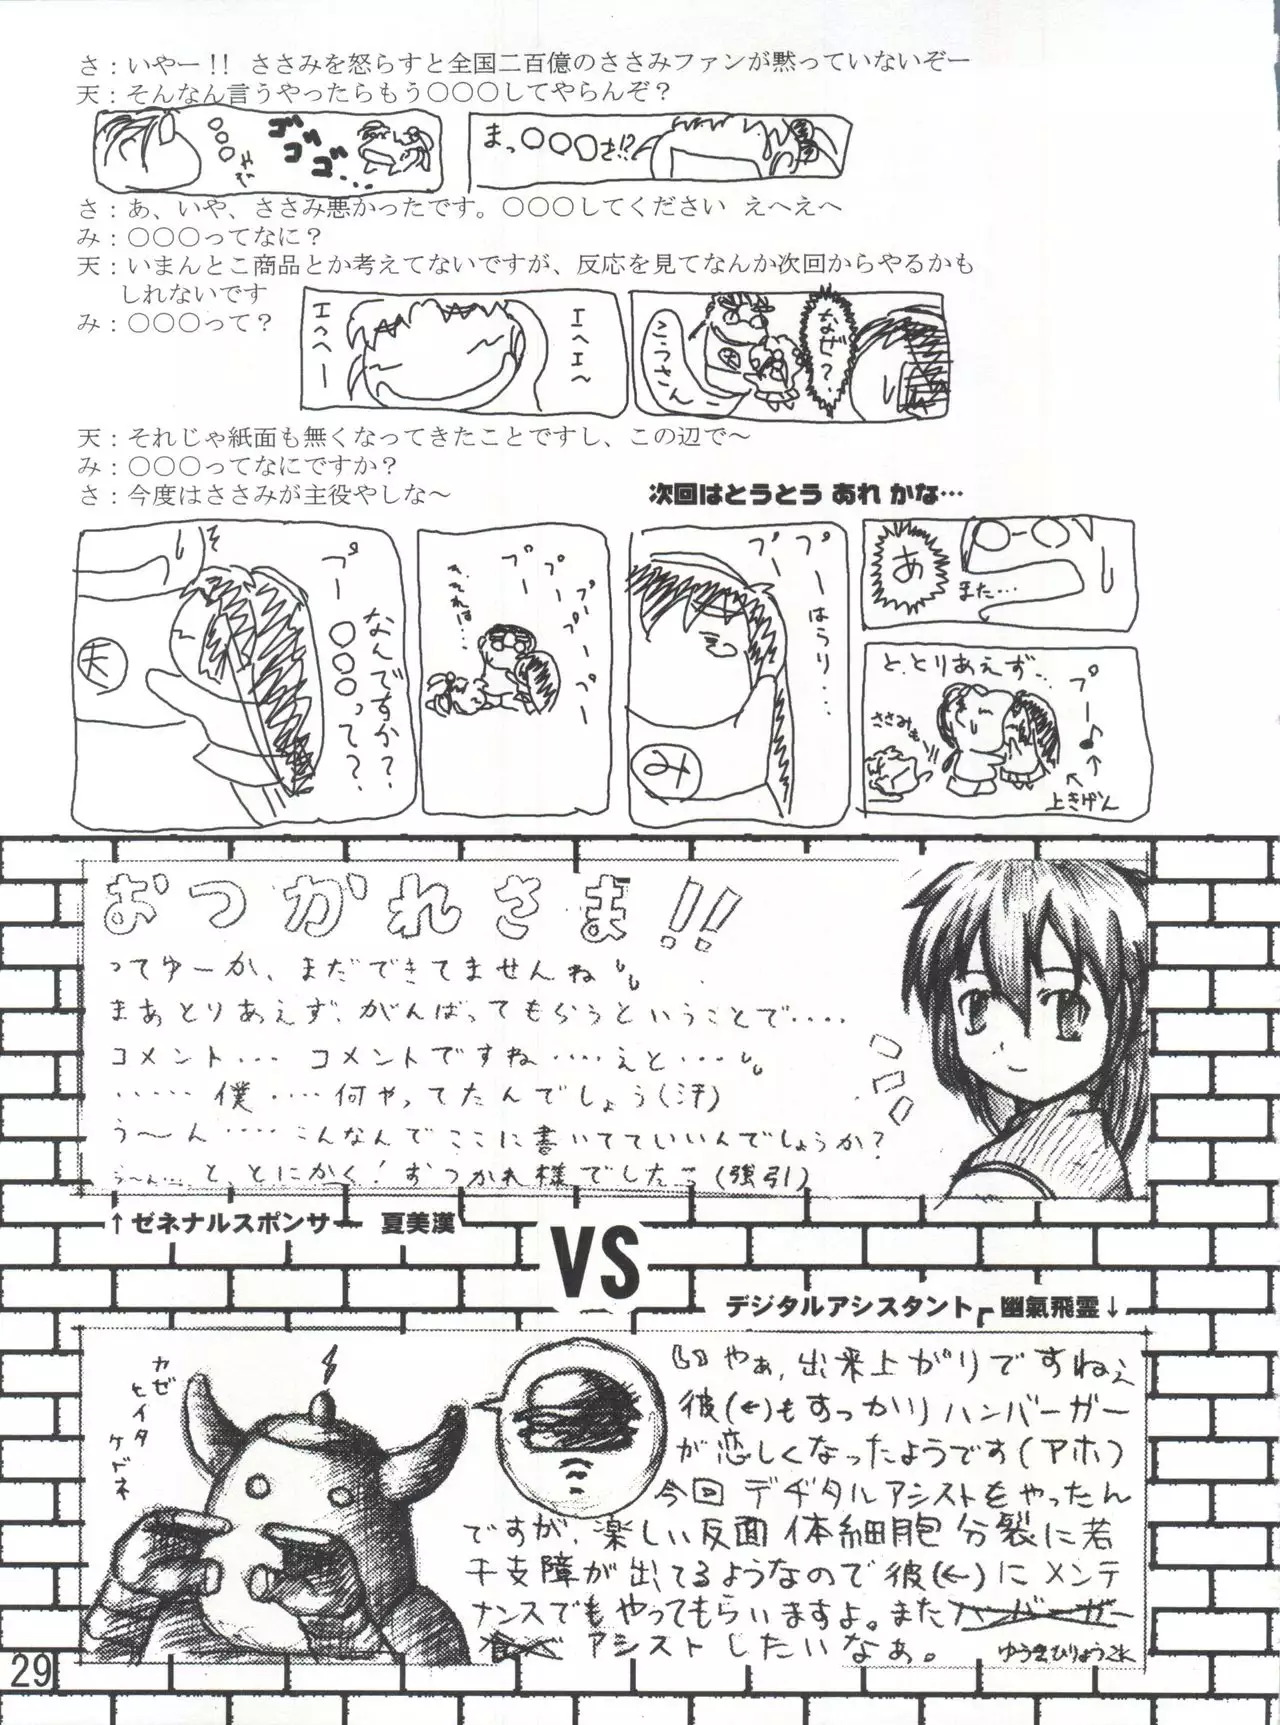 さ：いやー!! ささみを怒らすと全国二百億のささみファンが黙っていないぞー
天：そんなん言うやったらもう○○○してやらんぞ？
○○○
やぞ
ゴゴゴゴ…
まっ○○○さ!?
さ：あ、いや、ささみ悪かったです。○○○してください えへえへ
み：○○○ってなに？
天：いまんとこ商品とか考えてないですが、反応を見てなんか次回からやるかも
しれないです
み：○○○って？
エヘヘー
エヘエ～
なぜ？
天
天：それじゃ紙面も無くなってきたことですし、この辺で～
み：○○○ってなにですか？
さ：今度はささみが主役やしな～
次回はとうとう あれ かな…
なんですか？
○○○って？
プー
天
そ、それは…
プー
プー
プー
プー
プープーはうり…
み
あ
また…
と、とりあえず…
プー♪
ささみも
↑上きげん
おつかれさま!!
ってゆーか、まだできてませんね
まあとりあえず、がんばってもらうということで‥‥
コメント‥‥ コメントですね‥‥えと‥‥
‥‥‥僕‥‥何やってたんでしょう(汗)
う～ん‥‥こんなんでここに書いてていいんでしょうか？
う～ん…と、とにかく！おつかれ様でしたっ(強引)
↑ゼネナルスポンサー 夏美漢
VS
デジタルアシスタント 幽氣飛霊↓
カゼ
ヒイタ
ケドネ
やぁ、出来上がりですねぇ
彼(←)もすっかりハンバーガー
が恋しくなったようです(アホ)
今回デヂタルアシストをやったん
ですが、楽しい反面体細胞分裂に若
干支障が出てるようなので彼(←)にメンテ
ナンスでもやってもらいますよ。またハンバーガー
食べアシストしたいなぁ。 ゆうきひりょうこん
29